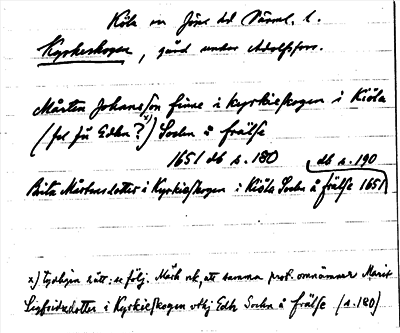 Köla sn Jösse hd Värml. l.
Kyrkeskogen, gård under Adolfsfors.
Mårten Johansson finne i kyrkieskogen i Kiöla
(fel för Edha? x)) Sochn å frälse
1651 db s. 180 db s. 190
Brita Mårtensdotter i Kyrkieskogen i Kiöla Sochn å frälse 1651
x) Tydligen rätt: se följ. Märk ock, att samma prot. omnämner Marit
Sigfridzdotter i Kyrkieskogen vthj Edh Sochn å frälse (s. 180)